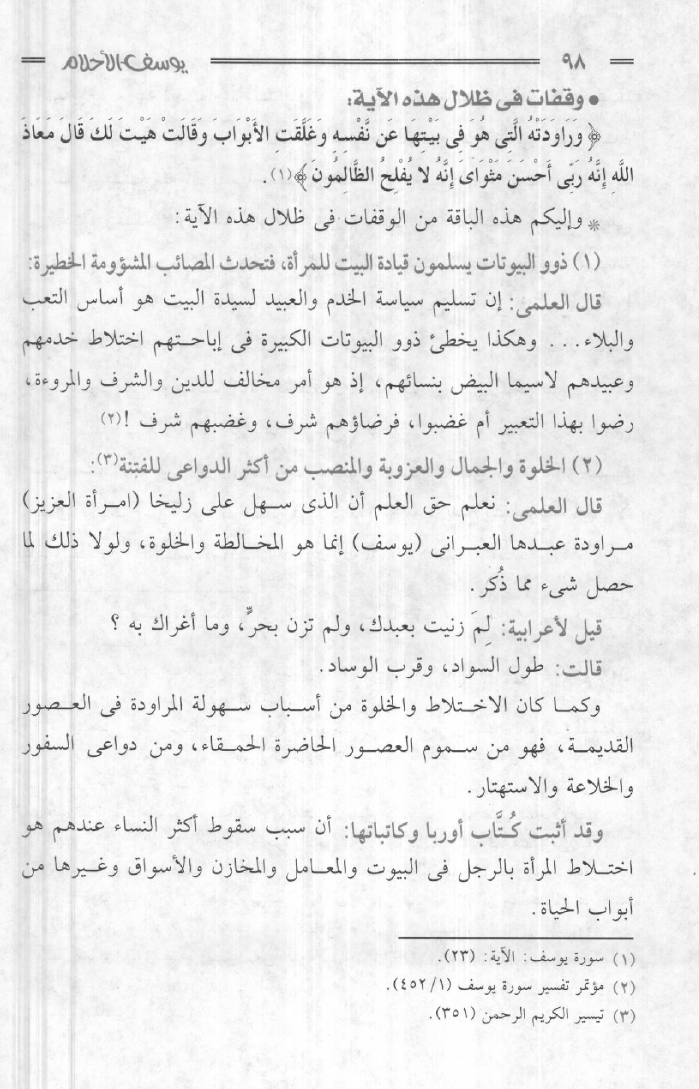 ٩٨ يوسف الأحلام
• وقفات فى ظلال هذه الآية:
﴿ وَرَاوَدَتْهُ الَّتِى هُوَ فِى بَيْتِهَا عَن نَّفْسِهِ وَغَلَّقَتِ الأَبْوَابَ وَقَالَتْ هَيْتَ لَكَ قَالَ مَعَاذَ
اللَّهِ إِنَّهُ رَبِّى أَحْسَنَ مَثْوَاىَ إِنَّهُ لا يُفْلِحُ الظَّالِمُونَ ﴾(١).
* وإليكم هذه الباقة من الوقفات فى ظلال هذه الآية:
(١) ذوو البيوتات يسلمون قيادة البيت للمرأة، فتحدث المصائب المشؤومة الخطيرة:
قال العلمى: إن تسليم سياسة الخدم والعبيد لسيدة البيت هو أساس التعب
والبلاء... وهكذا يخطئ ذوو البيوتات الكبيرة فى إباحتهم اختلاط خدمهم
وعبيدهم لاسيما البيض بنسائهم، إذ هو أمر مخالف للدين والشرف والمروءة،
رضوا بهذا التعبير أم غضبوا، فرضاؤهم شرف، وغضبهم شرف !(٢)
(٢) الخلوة والجمال والعزوبة والمنصب من أكثر الدواعى للفتنة(٣):
قال العلمى: نعلم حق العلم أن الذى سهل على زليخا (امرأة العزيز)
مراودة عبدها العبرانى (يوسف) إنما هو المخالطة والخلوة، ولولا ذلك لما
حصل شىء مما ذُكر.
قيل لأعرابية: لِمَ زنيت بعبدك، ولم تزن بحرٍّ، وما أغراك به ؟
قالت: طول السواد، وقرب الوساد.
وكما كان الاختلاط والخلوة من أسباب سهولة المراودة فى العصور
القديمة، فهو من سموم العصور الحاضرة الحمقاء، ومن دواعى السفور
والخلاعة والاستهتار.
وقد أثبت كُتَّاب أوربا وكاتباتها: أن سبب سقوط أكثر النساء عندهم هو
اختلاط المرأة بالرجل فى البيوت والمعامل والمخازن والأسواق وغيرها من
أبواب الحياة.
(١) سورة يوسف: الآية: (٢٣).
(٢) مؤتمر تفسير سورة يوسف (٤٥٢/١).
(٣) تيسير الكريم الرحمن (٣٥١).